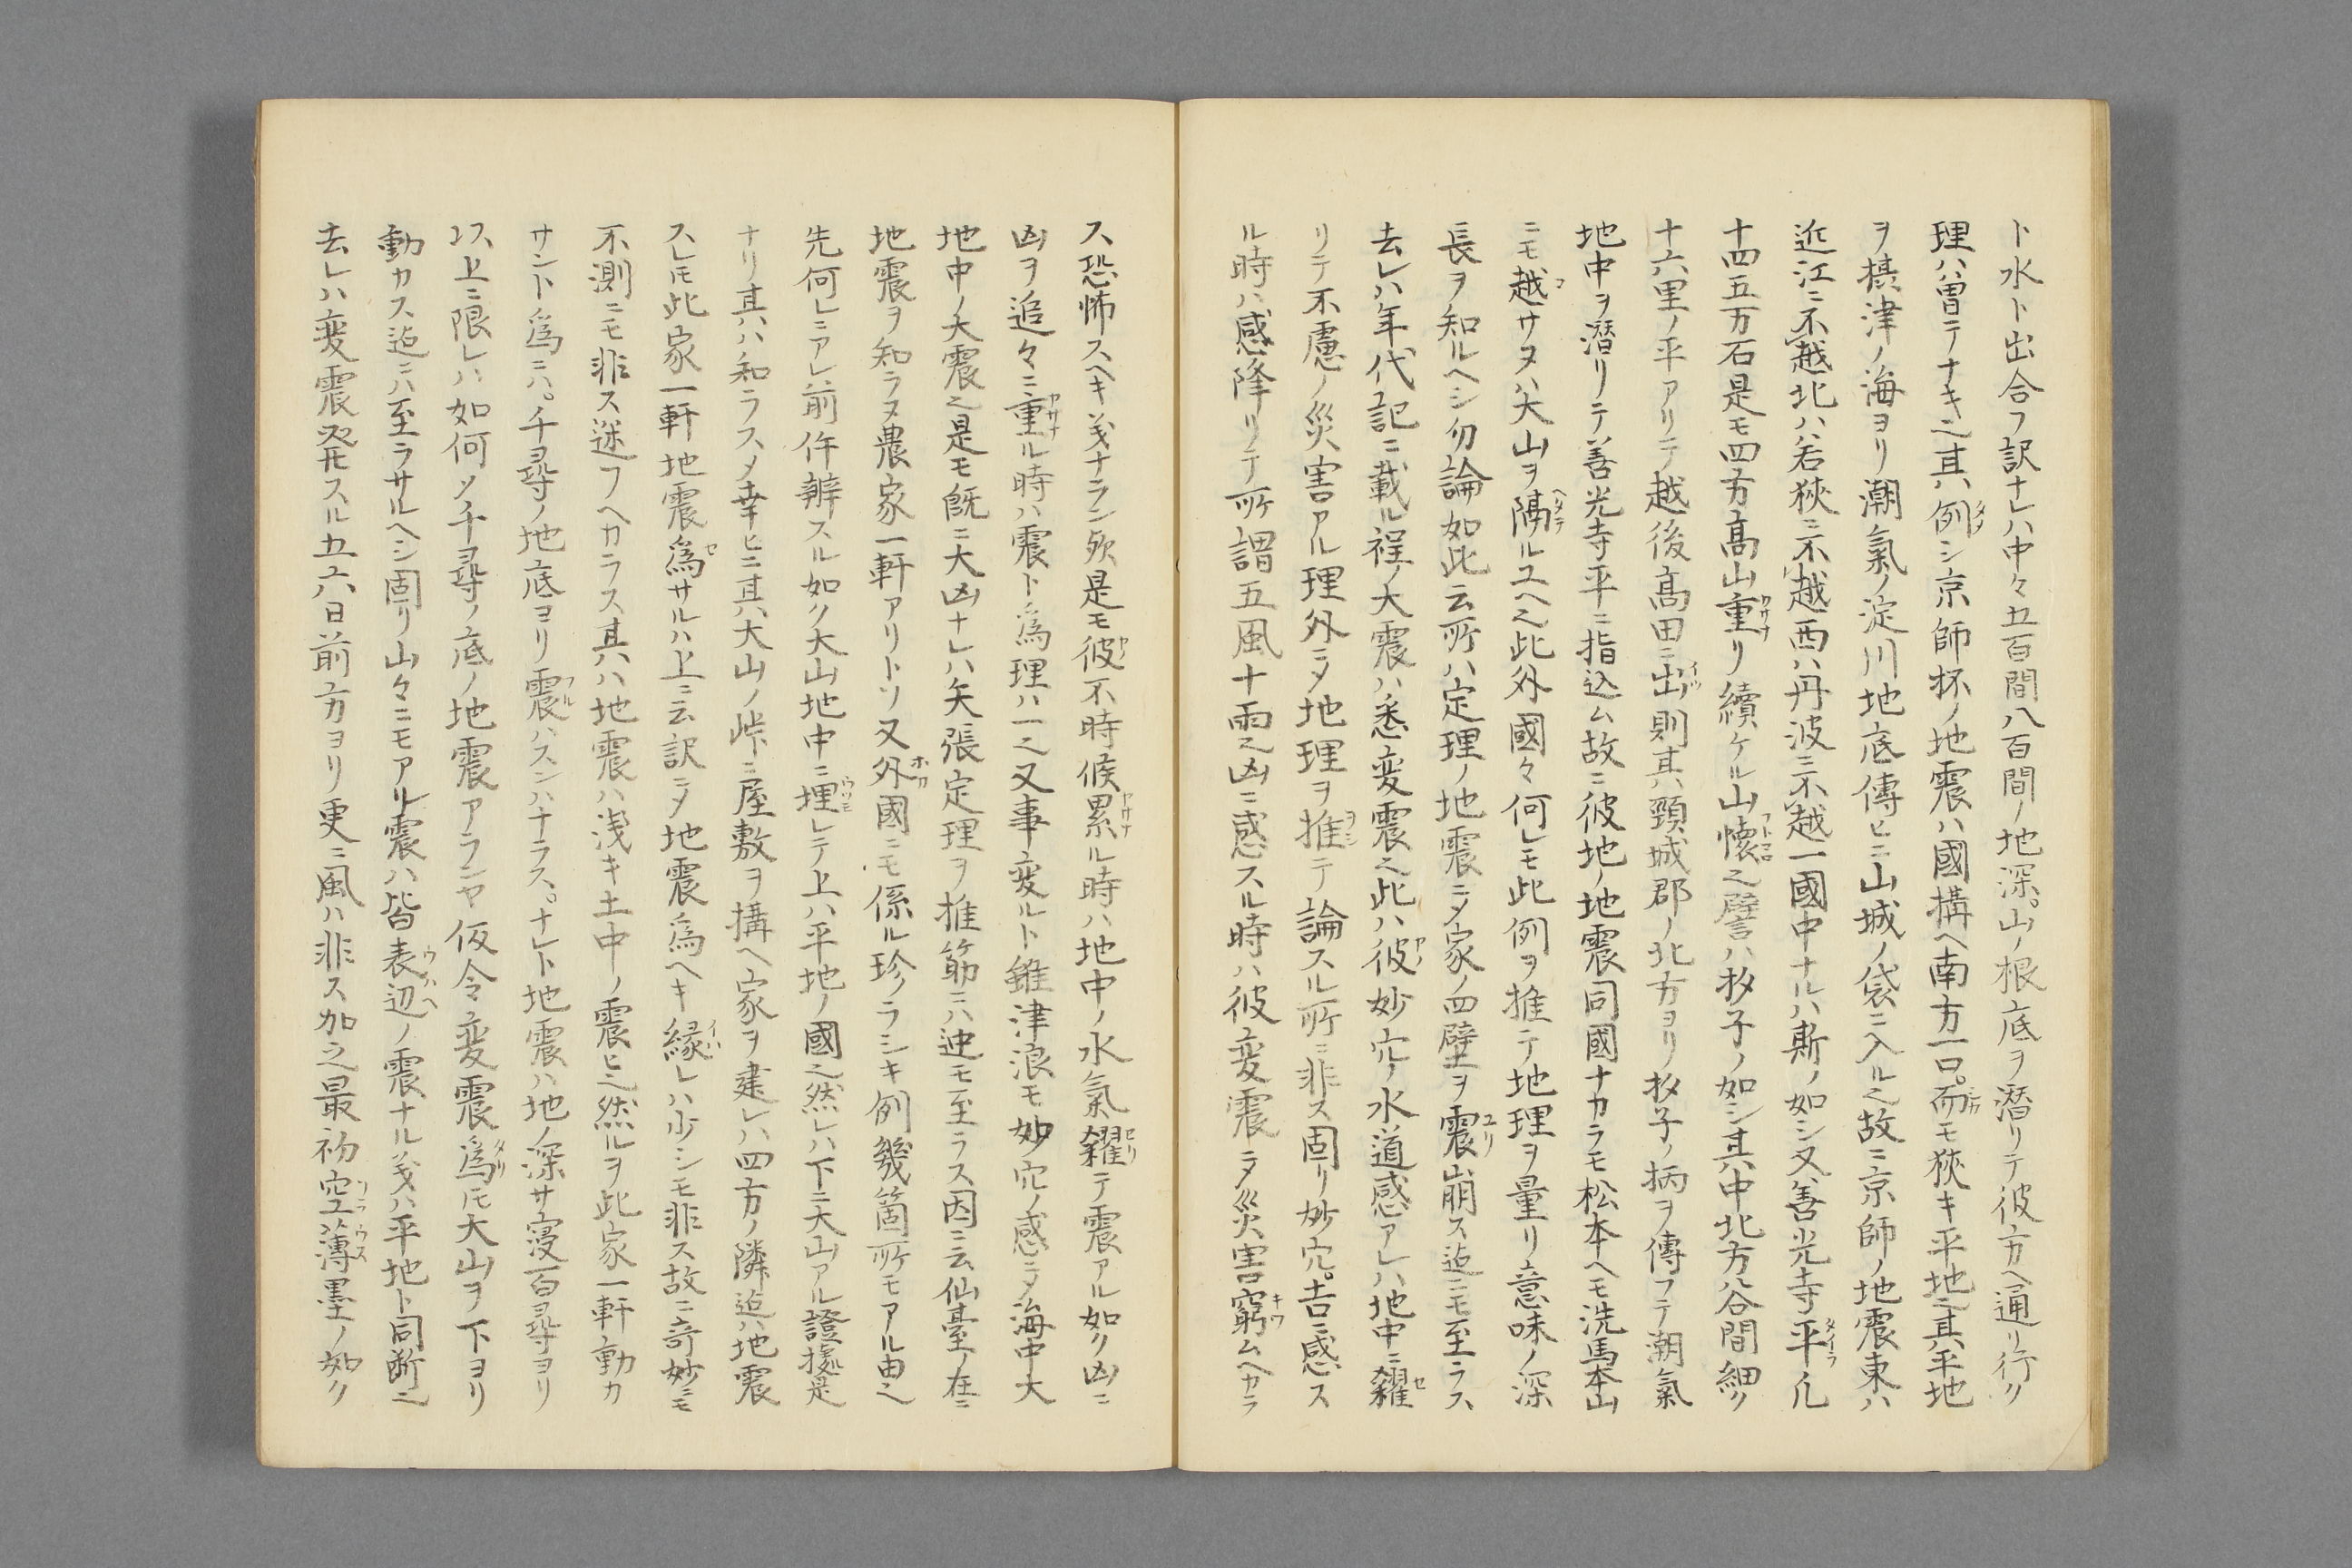 ト水ト出合フ訳ナレハ中々五百間八百間ノ地深。山ノ根底ヲ潜リテ彼方ヘ通リ行ク
理ハ曽テナキ也其ハ例シ京師抔ノ地震ハ國構ヘ南方一口。而モ狹キ平地也其ハ平地
ヲ摂津ノ海ヨリ潮氣ノ淀川地底傳ヒニ山城ノ袋ニ入ル也故ニ京師ノ地震東ハ
近江ニ不越北ハ若狹ニ不越西ハ丹波ニ不越一國中ナルハ斯ノ如シ又善光寺平凢
十四五万石是モ四方髙山重リ續ケル山懷也譬ハ杓子ノ如シ其ハ中北方谷間細ク
十六里ノ平アリテ越後髙田ニ出則其ハ頸城郡ノ北方ヨリ杓子ノ柄ヲ傳フテ潮氣
地中ヲ潜リテ善光寺平ニ指込ム故ニ彼地ノ地震同國ナカラモ松本ヘモ洗馬本山
ニモ越サヌハ大山ヲ隔ルユヘ也此外國々何レモ此例ヲ推テ地理ヲ量リ意味ノ深
長ヲ知ルヘシ勿論如此云所ハ定理ノ地震ニメ家ノ四壁ヲ震崩ス迠ニモ至ラス
去レハ年代記ニ載ル程ノ大震ハ悉変震也此ハ彼妙穴ノ水道感アレハ地中ニ糶
リテ不慮ノ災害アル理外ニメ地理ヲ推テ論スル所ニ非ス固リ妙穴。吉ニ感ス
ル時ハ感降リテ所謂五風十雨也凶ニ感スル時ハ彼変震ニメ災害窮ムヘカラ
ス恐怖スヘキ義ナラン欤是モ彼不時候累ル時ハ地中ノ水氣糶テ震アル如ク凶ニ
凶ヲ追々ニ重ル時ハ震ト爲理ハ一也又事変ルト雖津浪モ妙穴ノ感ニメ海中大
地中ノ大震也是モ既ニ大凶ナレハ矢張定理ヲ推筋ニハ迚モ至ラス因ニ云仙臺ノ在ニ
地震ヲ知ラヌ農家一軒アリトソ又外國ニモ係ル珍ラシキ例幾箇所モアル由也
先何レニアレ前件辨スル如ク大山地中ニ埋レテ上ハ平地ノ國也然レハ下ニ大山アル證據是
ナリ其ハ知ラスメ幸ヒニ其ハ大山ノ峠ニ屋敷ヲ搆ヘ家ヲ建レハ四方ノ隣迠ハ地震
スレ𪜈此家一軒地震爲サルハ上ニ云訳ニメ地震爲ヘキ縁レハ少シモ非ス故ニ竒妙ニモ
不測ニモ非ス迷フヘカラス其ハ地震ハ浅キ土中ノ震ヒ也然ルヲ此家一軒動カ
サント爲ニハ。千尋ノ地底ヨリ震ハスンハナラス。ナレト地震ハ地ノ深サ寝百尋ヨリ
以上ニ限レハ如何ソ千尋ノ底ノ地震アランヤ仮令変震爲𪜈大山ヲ下ヨリ
動カス迠ニハ至ラサルヘシ固リ山々ニモアル震ハ皆表辺ノ震ナル義ハ平地ト同断也
去レハ変震発スル五六日前方ヨリ更ニ風ハ非ス加之最初空薄墨ノ如ク